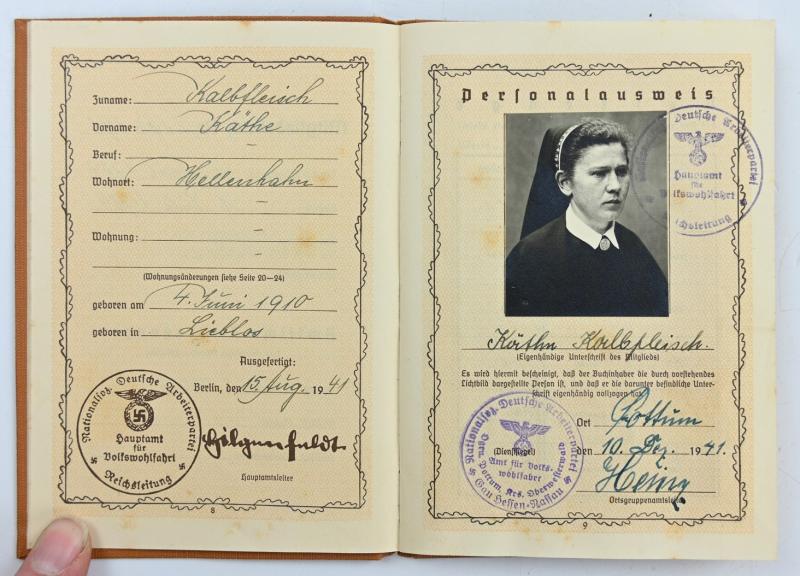 Zuname: Kalbfleisch
Vorname: Käthe
Beruf: —
Wohnort: Hellenhahn
—
Wohnung: —
—
(Wohnungsänderungen siehe Seite 20—24)
geboren am 4. Juni 1910
geboren in Lieblos
Ausgefertigt:
Berlin, den 15. Aug. 1941
Nationalsoz. Deutsche Arbeiterpartei
Hauptamt
für
Volkswohlfahrt
Reichsleitung
Hilgenfeldt
Hauptamtsleiter
8
Personalausweis
Deutsche Arbeiterpartei
Hauptamt
für
Volkswohlfahrt
Reichsleitung
Käthe Kalbfleisch.
(Eigenhändige Unterschrift des Mitglieds)
Es wird hiermit bescheinigt, daß der Buchinhaber die durch vorstehendes
Lichtbild dargestellte Person ist, und daß er die darunter befindliche Unter-
schrift eigenhändig vollzogen hat.
Ort Pottum
(Dienstsiegel)
den 10. Dez. 1941.
Nationalsoz. Deutsche Arbeiterpartei
Amt für Volks-
wohlfahrt
Ogru. Pottum, Krs. Oberwesterwald
Gau Hessen-Nassau
Ortsgruppenamtsleiter
9